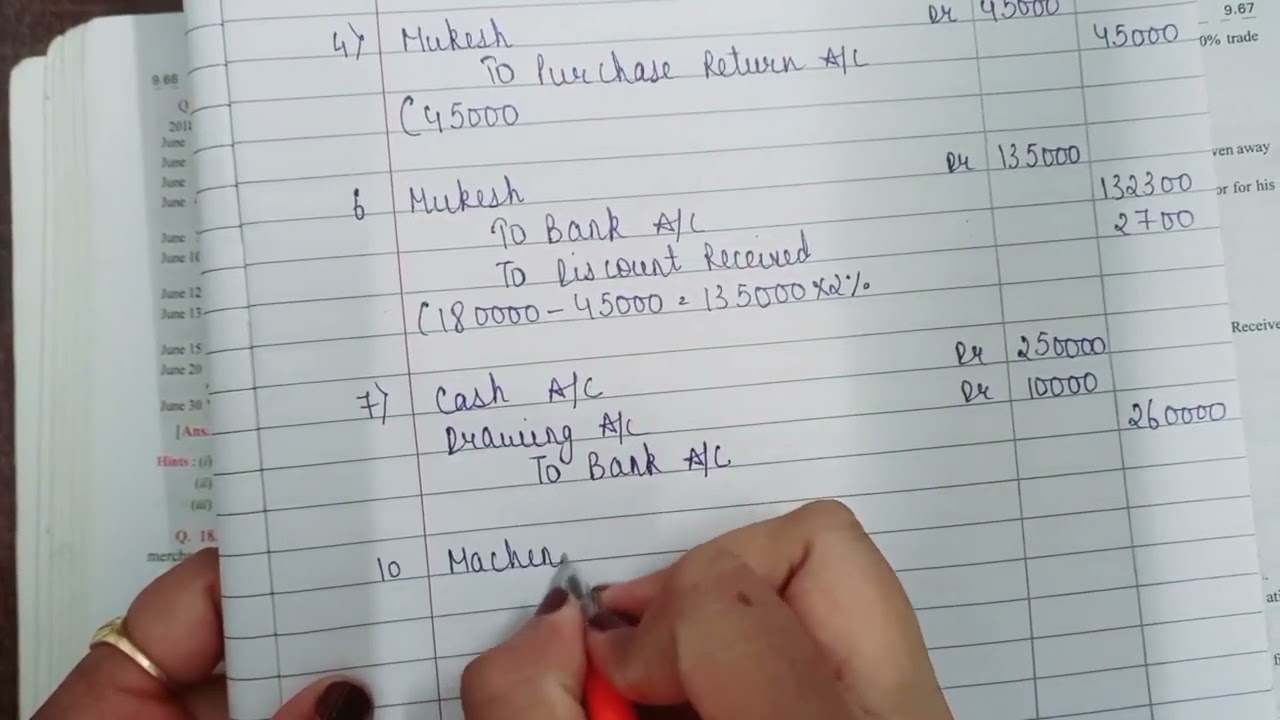 9.67
Dr 45000
4) Mukesh
45000
0% trade
To Purchase Return A/C
(45000
9.66
Q
2011
June
June
June
June
June
June 10
June 12
June 13
June 15
June 20
June 30
[Ans.
Hints : (i)
(ii)
(iii)
Q. 18.
merch
Dr 135000
ven away
6 Mukesh
132300
or for his
To Bank A/C
2700
To Discount Received
(180000 - 45000 = 135000 × 2%
Receive
Dr 250000
7) Cash A/C
Dr 10000
Drawing A/C
260000
To Bank A/C
10 Machen